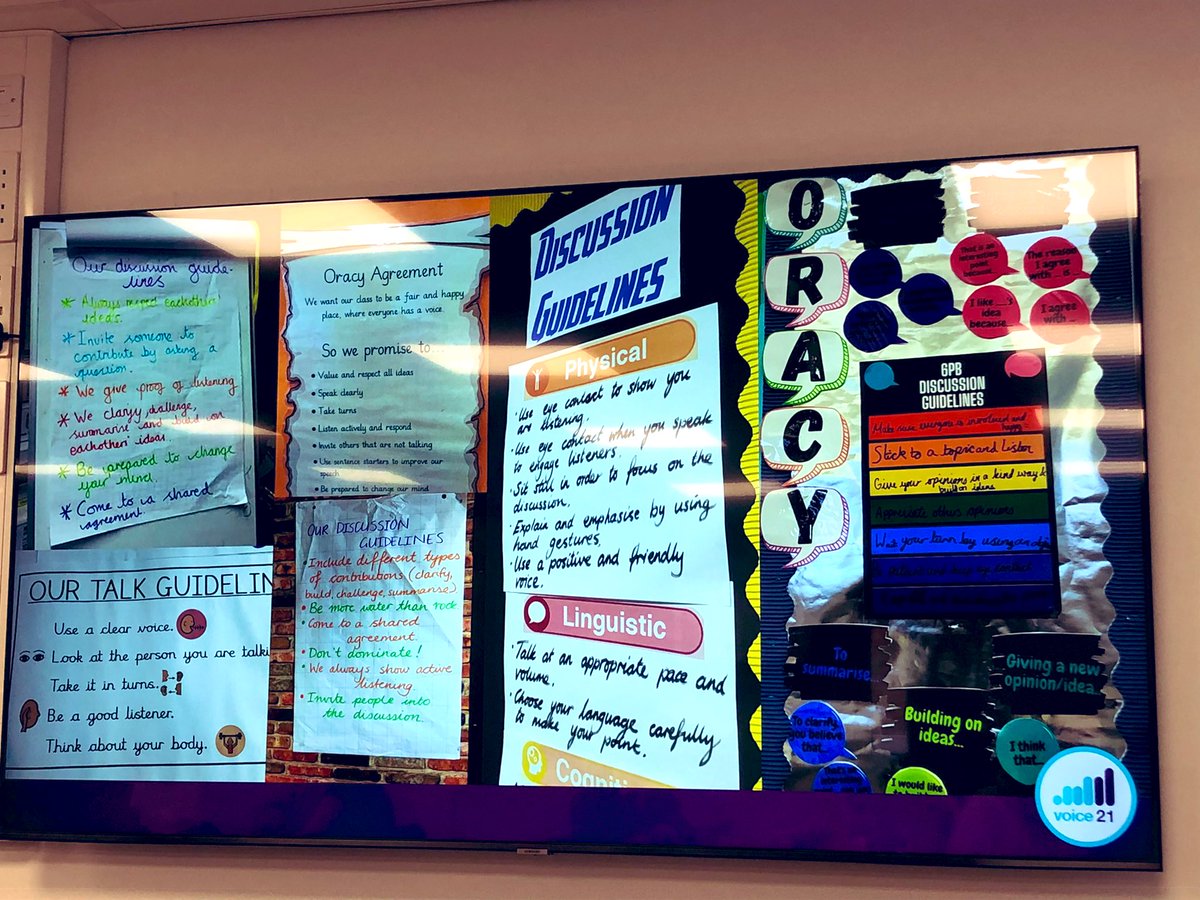 Our discussion guide-
lines
* Always respect eachothers
ideas.
* Invite someone to
contribute by asking a
question.
* We give proof of listening
* We clarify, challenge,
summarise and build on
eachothers' ideas.
* Be prepared to change
your mind.
* Come to a shared
agreement.
OUR TALK GUIDELIN
Use a clear voice.
Look at the person you are talki
Take it in turns.
Be a good listener.
Think about your body.
Oracy Agreement
We want our class to be a fair and happy
place, where everyone has a voice.
So we promise to...
• Value and respect all ideas
• Speak clearly
• Take turns
• Listen actively and respond
• Invite others that are not talking
• Use sentence starters to improve our
speech
• Be prepared to change our mind
OUR DISCUSSION
GUIDELINES
• Include different types
of contributions (clarify,
build, challenge, summarise)
• Be more water than rock
• Come to a shared
agreement.
• Don't dominate!
• We always show active
listening
• Invite people into
the discussion.
DISCUSSION
GUIDELINES
Physical
• Use eye contact to show you
are listening.
• Use eye contact when you speak
to engage listeners.
• Sit still in order to focus on the
discussion.
• Explain and emphasise by using
hand gestures.
• Use a positive and friendly
voice.
Linguistic
• Talk at an appropriate pace and
volume.
• Choose your language carefully
to make your point.
Cogniti
ORACY
That is an
interesting
point
because...
The reason
I agree
with ... is
I like ___'s
idea
because...
I agree
with ...
6PB
DISCUSSION
GUIDELINES
Make sure everyone is involved and
happy
Stick to a topic and listen
Give your opinions in a kind way &
build on ideas
Appreciate others opinions
Wait your turn by using an
To
summarise
Giving a new
opinion/idea...
To clarify,
you believe
that...
Building on
ideas...
I think
that...
I would like
voice 21